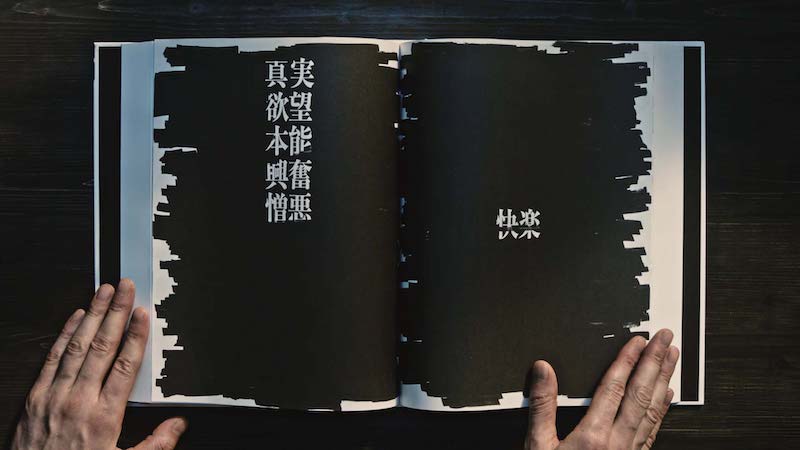 真実
欲望
本能
興奮
憎悪
快楽